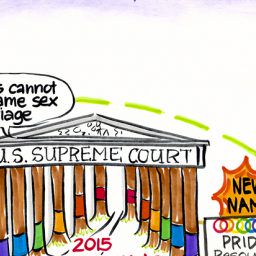 cannot
ame sex
iage
U.S. SUPREME COURT
2015
NEW
NAM
PRID